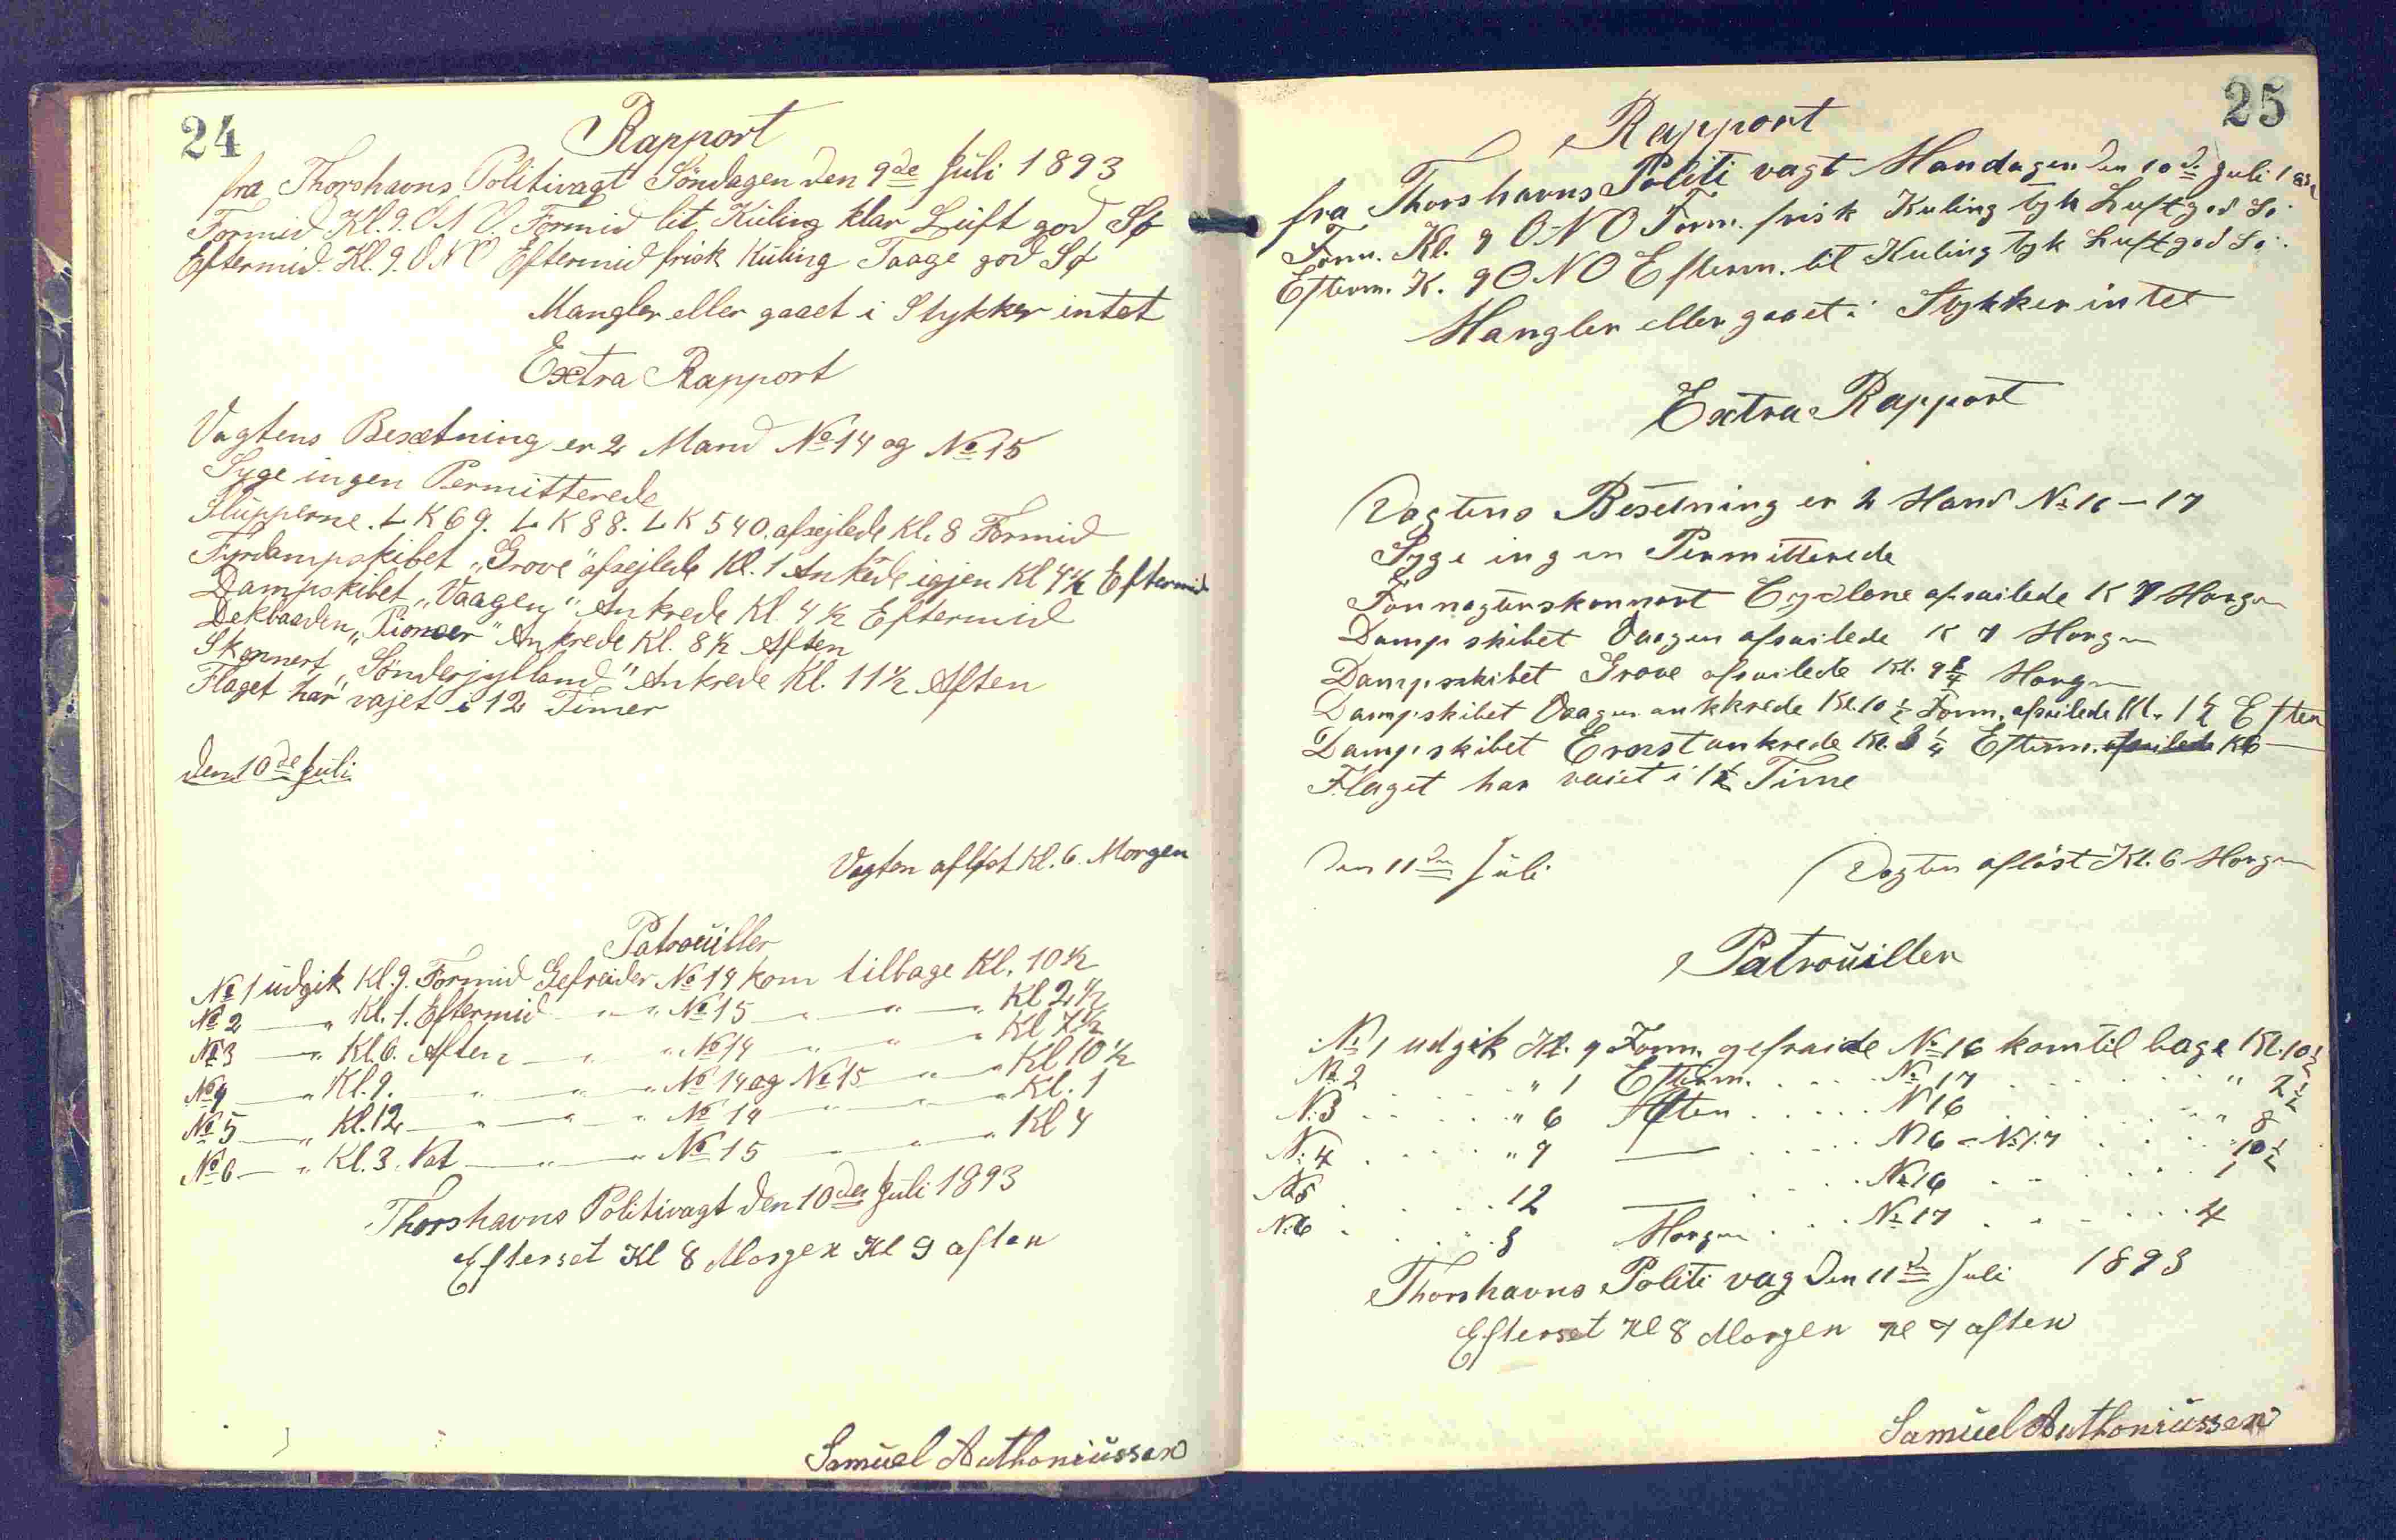 24
Rapport
fra Thorshavns Politivagt Söndagen den 9de Juli 1893
Formid Kl. 9. ONO. Formid lit Küling klar Lüft god Sø
Eftermid. Kl. 9. ONO Eftermid frisk Küling Taage god Sø
Mangler eller gaaet i Stykker intet
Extra Rapport
Vagtens Besætning er 2 Mand No 14 og No 15
Syge ingen Permitterede
Slupperne. LK 69. LK 88. LK 540. afsejlede Kl. 8 Formid
Fyrdampskibet „Grove" afsejlede Kl. 1 Ankrede igjen Kl 4½ Eftermid
Dampskibet „Vaagen" Ankrede Kl. 4½ Eftermid
Dekbaaden „Pioneer" Ankrede Kl. 8½ Aften
Skonnert „Sönderjylland" Ankrede Kl. 11½ Aften
Flaget har vajet i 12 Timer
den 10de Juli
Vagten afløst Kl. 6. Morgen
Patroüiller
No 1 udgik Kl. 9. Formid Gefreider No 14 kom tilbage Kl. 10½
No 2 — „ Kl. 1. Eftermid — „ „ No 15 — „ — „ Kl 2½
No 3 — „ Kl. 6. Aften — „ „ No 14 „ „ „ Kl 7½
No 4 — „ Kl. 9. „ — „ „ No 14 og No 15 — „ Kl 10½
No 5 — „ Kl. 12 — „ — „ „ No 14 — „ — „ Kl. 1
No 6 — „ Kl. 3. Nat — „ — No 15 — „ — „ Kl 4
Thorshavns Politivagt den 10de Juli 1893
Efterset Kl 8 Morgen Kl 9 aften
Samüel Anthoniüssen
25
Rapport
fra Thorshavns Politi vagt Mandagen den 10de Juli 1893
Form. Kl. 9 ONO Form. frisk Kuling tyk Luft god Sö.
Efterm. K. 9 ONO Efterm. lit Kuling tyk Luft god Sö.
Mangler eller gaaet i Stykker intet
Extra Rapport
Vagtens Besetning er 2 Mand No 16 – 17
Syge ingen Permitterede
afsailede K 7 Morgen
Dampskibet Vaagen afsailede K 7 Morgen
Dampskibet Grove afsailede Kl. 9¾ Morgen
Dampskibet Vaagen ankkrede Kl. 10½ Form. afsailede Kl. 1½ Eften
Dampskibet Ernst ankrede Kl. 3¼ Efterm. afsailede Kl 6
Flaget har vaiet i 1½ Time
den 11de Juli
Vagten aflöst Kl. 6 Morgen
Patroüiller
No 1 udgik Kl. 9 Form. gefraide No 16 kom til bage Kl. 10½
No 2 „ 1 Efterm. . . . . No 17 . . . . . „ 2½
No 3 . . . . . „ 6 Aften . . . . . N 16 . . . . . „ 8
No 4 . . . . . „ 9 — . . . . N 16 – No 17 . . . . „ 10½
No 5 . . . . . 12 — . . . . No 16 . . . . . 1
No 6 . . . . . 3 Morgen . . . . No 17 . . . . . 4
Thorshavns Politi vag den 11de Juli 1893
Efterset Kl 8 Morgen Kl 7 aften
Samüel Anthoniüssen